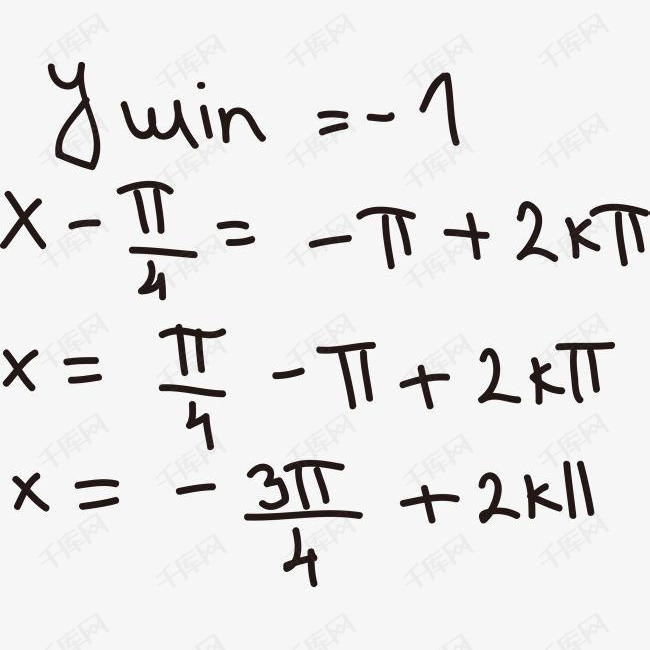 y min = - 1
x - π/4 = - π + 2kπ
x = π/4 - π + 2kπ
x = - 3π/4 + 2kll
千库网